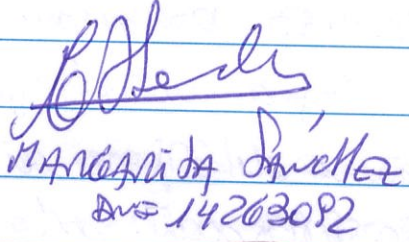 MARGARITA SÁNCHEZ
DNI 14263092